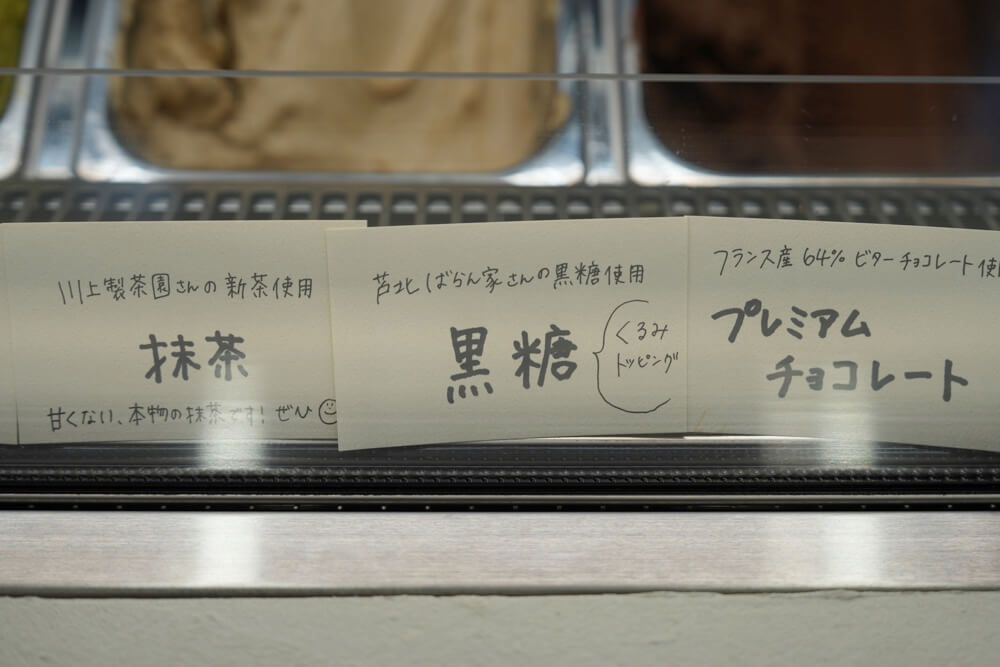 川上製茶園さんの新茶使用
抹茶
甘くない、本物の抹茶です！ぜひ
芦北ばらん家さんの黒糖使用
黒糖
くるみ
トッピング
フランス産64%ビターチョコレート使用
プレミアム
チョコレート